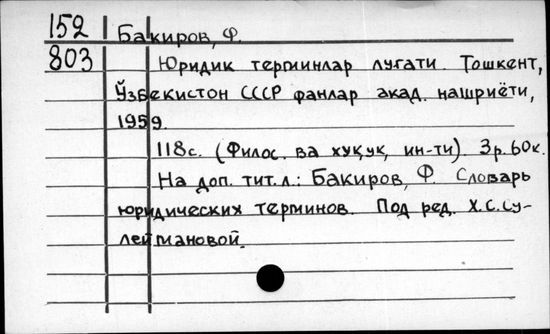 152 Бакиров, Ф.
803 Юридик терминлар луғати. Тошкент,
Ўзбекистон СССР фанлар акад. нашриёти,
1959.
118с. (Филос. ва хуқуқ, ин-ти). 3р. 60к.
На доп. тит. л.: Бакиров, Ф. Словарь
юридических терминов. Под ред. Х.С.Су-
леймановой.